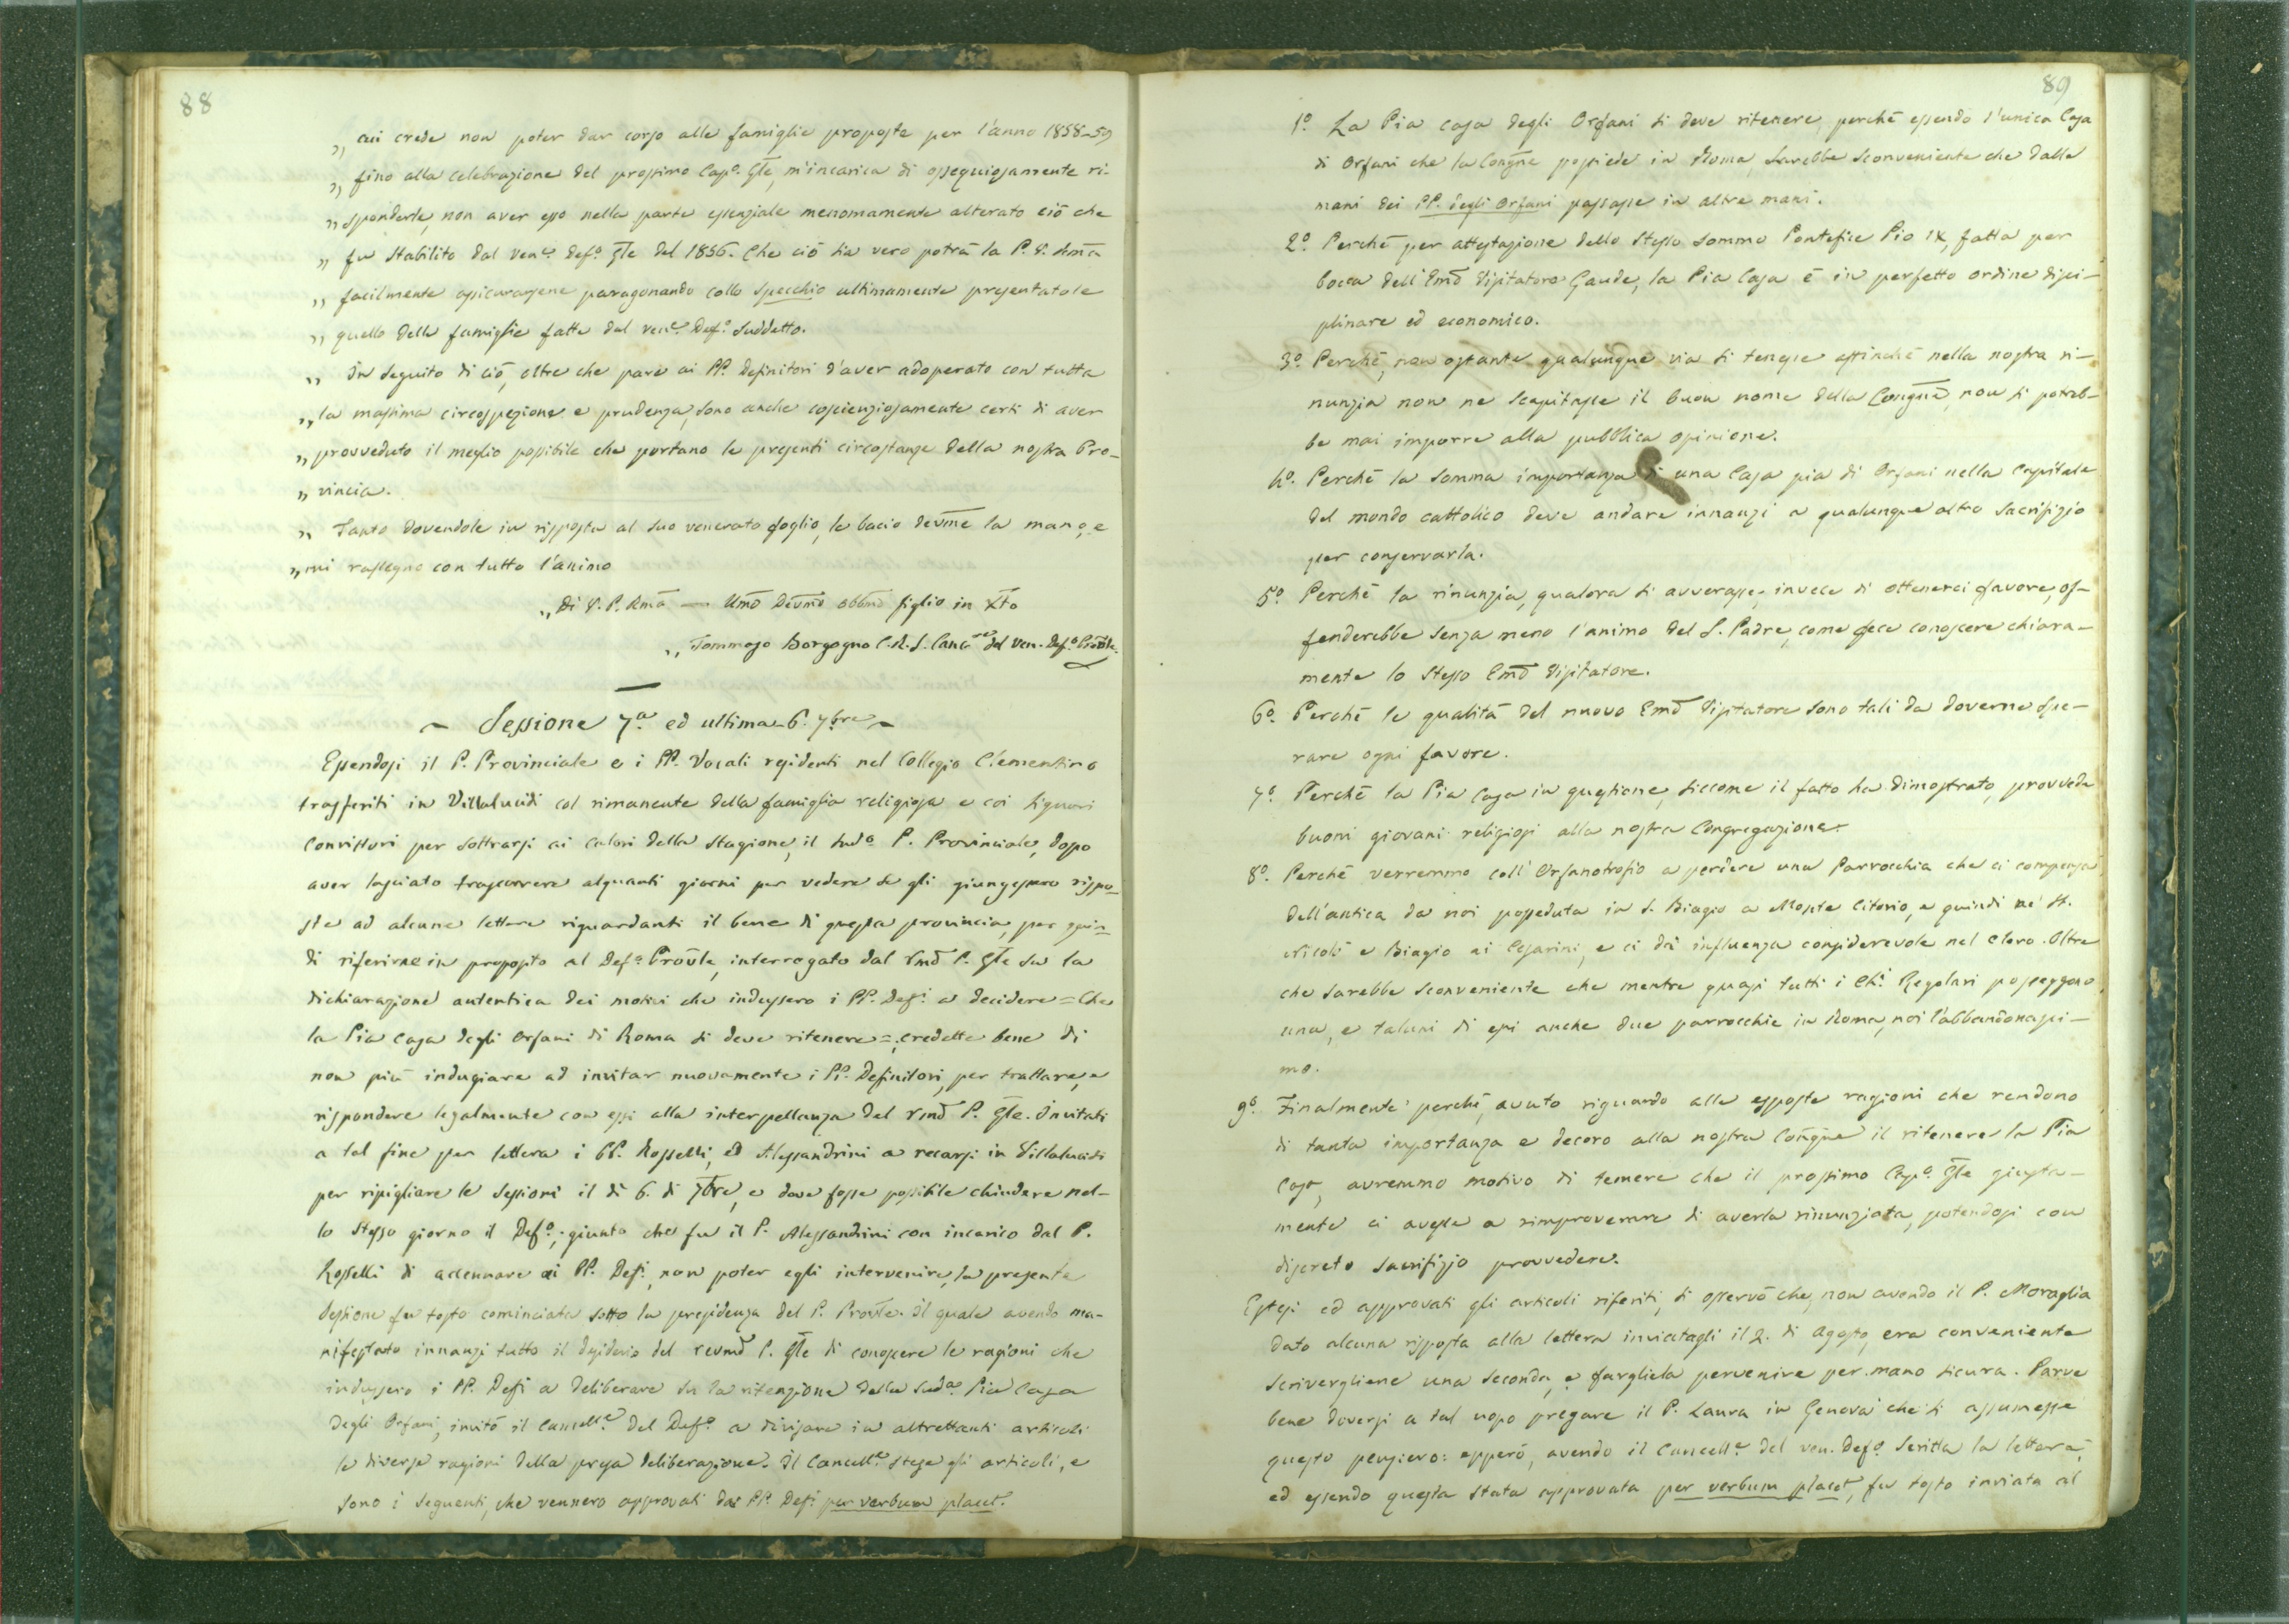 88
„ cui crede non poter dar corso alle famiglie proposte per l'anno 1858-59
„ fino alla celebrazione del prossimo Cap.º Gle, m'incarica di ossequiosamente ri-
„ sponderle, non aver esso nella parte essenziale menomamente alterato ciò che
„ fu stabilito dal ven.e Def.º Gle del 1856. Che ciò sia vero potrà la P. V. Rma
„ facilmente assicurarsene paragonando collo specchio ultimamente presentatole
„ quello delle famiglie fatte dal ven.e Def.º suddetto.
„ In seguito di ciò, oltre che pare ai PP. Definitori d'aver adoperato con tutta
„ la massima circospezione e prudenza, sono anche coscienziosamente certi di aver
„ provveduto il meglio possibile che portano le presenti circostanze della nostra Pro-
„ vincia.
„ Tanto dovendole in risposta al suo venerato foglio, le bacio devme la mano, e
„ mi rassegno con tutto l'animo
„ Di V. P. Rma — Umo Devmo Obbmo figlio in Xto
„ Tommaso Borgogno C. R. S. Canc.re del ven. Def.º Provle.
~ Sessione 7.a ed ultima - 6. 7bre ~
Essendosi il P. Provinciale e i PP. Vocali residenti nel Collegio Clementino
trasferiti in Villalucidi col rimanente della famiglia religiosa e coi signori
Convittori per sottrarsi ai calori della stagione, il sud.º P. Provinciale, dopo
aver lasciato trascorrere alquanti giorni per vedere se gli giungessero rispo-
ste ad alcune lettere riguardanti il bene di questa provincia, per quin-
di riferirne in proposito al Def.º Provle, interrogato dal Rmo P. Gle su la
dichiarazione autentica dei motivi che indussero i PP. Def.i a decidere = Che
la Pia Casa degli Orfani di Roma si deve ritenere =; credette bene di
non più indugiare ad invitar nuovamente i PP. Definitori, per trattare, e
rispondere legalmente con essi alla interpellanza del Rmo P. Gle. Invitati
a tal fine per lettera i PP. Rosselli, ed Alessandrini a recarsi in Villalucidi
per ripigliare le sessioni il dì 6. di 7bre, e dove fosse possibile chiudere nel-
lo stesso giorno il Def.º; giunto che fu il P. Alessandrini con incarico dal P.
Rosselli di accennare ai PP. Def.i non poter egli intervenire, la presente
sessione fu tosto cominciata sotto la presidenza del P. Provle. Il quale avendo ma-
nifestato innanzi tutto il desiderio del revmo P. Gle di conoscere le ragioni che
indussero i PP. Def.i a deliberare su la ritenzione della sud.a Pia Casa
degli Orfani, invitò il Cancell.e del Def.º a divisare in altrettanti articoli
le diverse ragioni della presa deliberazione. Il Cancell.e stese gli articoli, e
sono i seguenti, che vennero approvati dai PP. Def.i per verbum placet.
89
1.º La Pia casa degli Orfani si deve ritenere, perchè essendo l'unica Casa
di Orfani che la Congne possiede in Roma, sarebbe sconveniente che dalle
mani dei PP. degli Orfani passasse in altre mani.
2.º Perchè per attestazione dello stesso sommo Pontefice Pio IX, fatta per
bocca dell'Emo Visitatore Gaude, la Pia Casa è in perfetto ordine disci-
plinare ed economico.
3.º Perchè, non ostante qualunque via si tenesse affinchè nella nostra ri-
nunzia non ne scapitasse il buon nome della Congne, non si potreb-
be mai imporre alla pubblica opinione.
4.º Perchè la somma importanza di una Casa pia di Orfani nella Capitale
del mondo cattolico deve andare innanzi a qualunque altro sacrifizio
per conservarla.
5.º Perchè la rinunzia, qualora si avverasse, invece di ottenerci favore, of-
fenderebbe senza meno l'animo del S. Padre, come fece conoscere chiara-
mente lo stesso Emo Visitatore.
6.º Perchè le qualità del nuovo Emo Visitatore sono tali da doverne spe-
rare ogni favore.
7.º Perchè la Pia Casa in questione, siccome il fatto ha dimostrato, provvede
buoni giovani religiosi alla nostra Congregazione.
8.º Perchè verremmo coll'Orfanotrofio a perdere una Parrocchia che ci compensa
dell'antica da noi posseduta in S. Biagio a Monte Citorio, e quindi ne' SS.
Nicolò e Biagio ai Cesarini, e ci dà influenza considerevole nel clero. Oltre
che sarebbe sconveniente che mentre quasi tutti i Ch.i Regolari posseggono
una, e taluni di essi anche due parrocchie in Roma, noi l'abbandonassi-
mo.
9.º Finalmente perchè, avuto riguardo alle esposte ragioni che rendono
di tanta importanza e decoro alla nostra Congne il ritenere la Pia
Casa, avremmo motivo di temere che il prossimo Cap.º Gle giusta-
mente ci avesse a rimproverare di averla rinunziata, potendosi con
discreto sacrifizio provvedere.
Estesi ed approvati gli articoli riferiti, si osservò che, non avendo il P. Moraglia
dato alcuna risposta alla lettera inviatagli il 2. di Agosto, era conveniente
scrivergliene una seconda, e fargliela pervenire per mano sicura. Parve
bene doversi a tal uopo pregare il P. Laura in Genova che si assumesse
questo pensiero: epperò, avendo il Cancell.e del ven. Def.º scritta la lettera,
ed essendo questa stata approvata per verbum placet, fu tosto inviata al